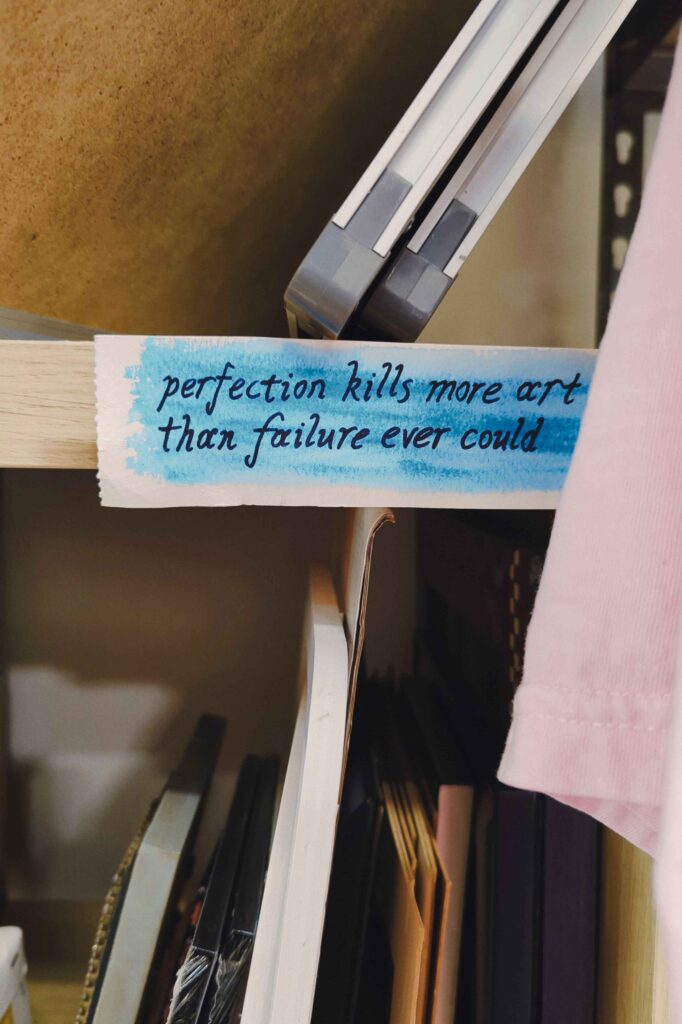 perfection kills more art
than failure ever could